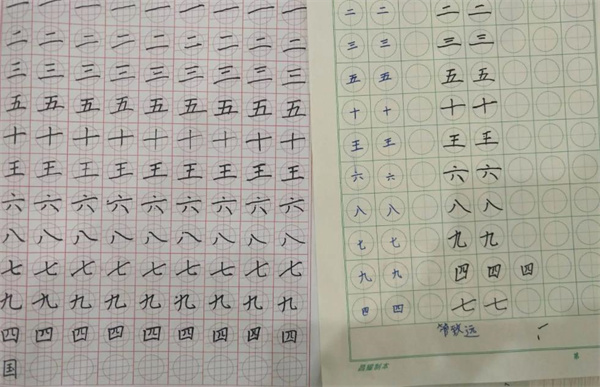 一 一 一 一 一 一 一 一 一
二 二 二 二 二 二 二 二 二
三 三 三 三 三 三 三 三 三
五 五 五 五 五 五 五 五 五
十 十 十 十 十 十 十 十 十
王 王 王 王 王 王 王 王 王
六 六 六 六 六 六 六 六 六
八 八 八 八 八 八 八 八 八
七 七 七 七 七 七 七 七 七
九 九 九 九 九 九 九 九 九
四 四 四 四 四 四 四 四 四
国
二 二 二 二
三 三 三 三
五 五 五 五
十 十 十 十
王 王 王 王
六 六 六 六
八 八 八 八
七 七 九 九
九 九 四 四 四
四 四 七 七
致远